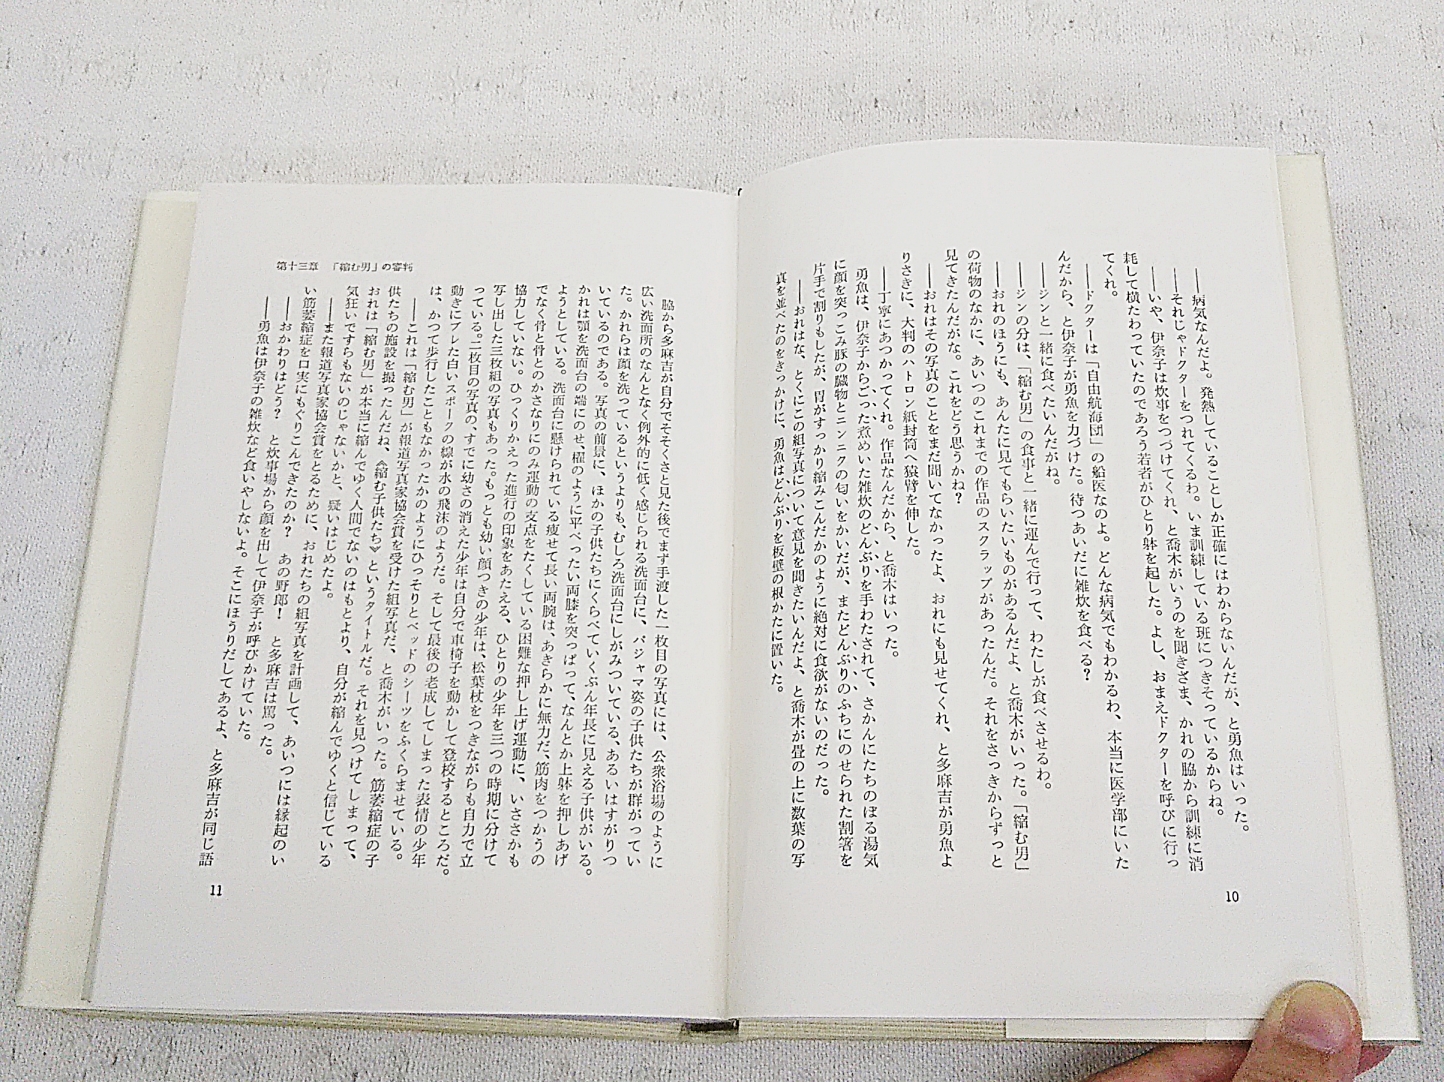 ――病気なんだよ。発熱していることしか正確にはわからないんだが、と勇魚はいった。
――それじゃドクターをつれてくるわ。いま訓練している班につきそっているからね。
――いや、伊奈子は炊事をつづけてくれ、と喬木がいうのを聞きざま、かれの脇から訓練に消
耗して横たわっていたのであろう若者がひとり躰を起した。よし、おまえドクターを呼びに行っ
てくれ。
――ドクターは「自由航海団」の船医なのよ。どんな病気でもわかるわ、本当に医学部にいた
んだから、と伊奈子が勇魚を力づけた。待つあいだに雑炊を食べる？
――ジンと一緒に食べたいんだがね。
――ジンの分は、「縮む男」の食事と一緒に運んで行って、わたしが食べさせるわ。
――おれのほうにも、あんたに見てもらいたいものがあるんだよ、と喬木がいった。「縮む男」
の荷物のなかに、あいつのこれまでの作品のスクラップがあったんだ。それをさっきからずっと
見てきたんだがな。これをどう思うかね？
――おれはその写真のことをまだ聞いてなかったよ、おれにも見せてくれ、と多麻吉が勇魚よ
りさきに、大判のハトロン紙封筒へ猿臂を伸した。
――丁寧にあつかってくれ。作品なんだから、と喬木はいった。
勇魚は、伊奈子からごった煮めいた雑炊のどんぶりを手わたされて、さかんにたちのぼる湯気
に顔を突っこみ豚の臓物とニンニクの匂いをかいだが、またどんぶりのふちにのせられた割箸を
片手で割りもしたが、胃がすっかり縮みこんだかのように絶対に食欲がないのだった。
――おれはな、とくにこの組写真について意見を聞きたいんだよ、と喬木が畳の上に数葉の写
真を並べたのをきっかけに、勇魚はどんぶりを板壁の根かたに置いた。
10
第十三章　「縮む男」の審判
脇から多麻吉が自分でそそくさと見た後でまず手渡した一枚目の写真には、公衆浴場のように
広い洗面所のなんとなく例外的に低く感じられる洗面台に、パジャマ姿の子供たちが群がってい
た。かれらは顔を洗っているというよりも、むしろ洗面台にしがみついている、あるいはすがりつ
いているのである。写真の前景に、ほかの子供たちにくらべていくぶん年長に見える子供がいる。
かれは顎を洗面台の端にのせ、櫂のように平べったい両膝を突っぱって、なんとか上躰を押しあげ
ようとしている。洗面台に懸けられている痩せて長い両腕は、あきらかに無力だ、筋肉をつかうの
でなく骨と骨とのかさなりにのみ運動の支点をたくしている困難な押し上げ運動に、いささかも
協力していない。ひっくりかえった進行の印象をあたえる、ひとりの少年を三つの時期に分けて
写し出した三枚組の写真もあった。もっとも幼い顔つきの少年は、松葉杖をつきながらも自力で立
っている。二枚目の写真の、すでに幼さの消えた少年は自分で車椅子を動かして登校するところだ。
動きにブレた白いスポークの線が水の飛沫のようだ。そして最後の老成してしまった表情の少年
は、かつて歩行したこともなかったかのようにひっそりとベッドのシーツをふくらませている。
――これは「縮む男」が報道写真家協会賞を受けた組写真だ、と喬木がいった。筋萎縮症の子
供たちの施設を撮ったんだね、《縮む子供たち》というタイトルだ。それを見つけてしまって、
おれは「縮む男」が本当に縮んでゆく人間でないのはもとより、自分が縮んでゆくと信じている
気狂いですらもないのじゃないかと、疑いはじめたよ。
――また報道写真家協会賞をとるために、おれたちの組写真を計画して、あいつには縁起のい
い筋萎縮症を口実にもぐりこんできたのか？　あの野郎！　と多麻吉は罵った。
――おかわりはどう？　と炊事場から顔を出して伊奈子が呼びかけていた。
――勇魚は伊奈子の雑炊など食いやしないよ。そこにほうりだしてあるよ、と多麻吉が同じ語
11